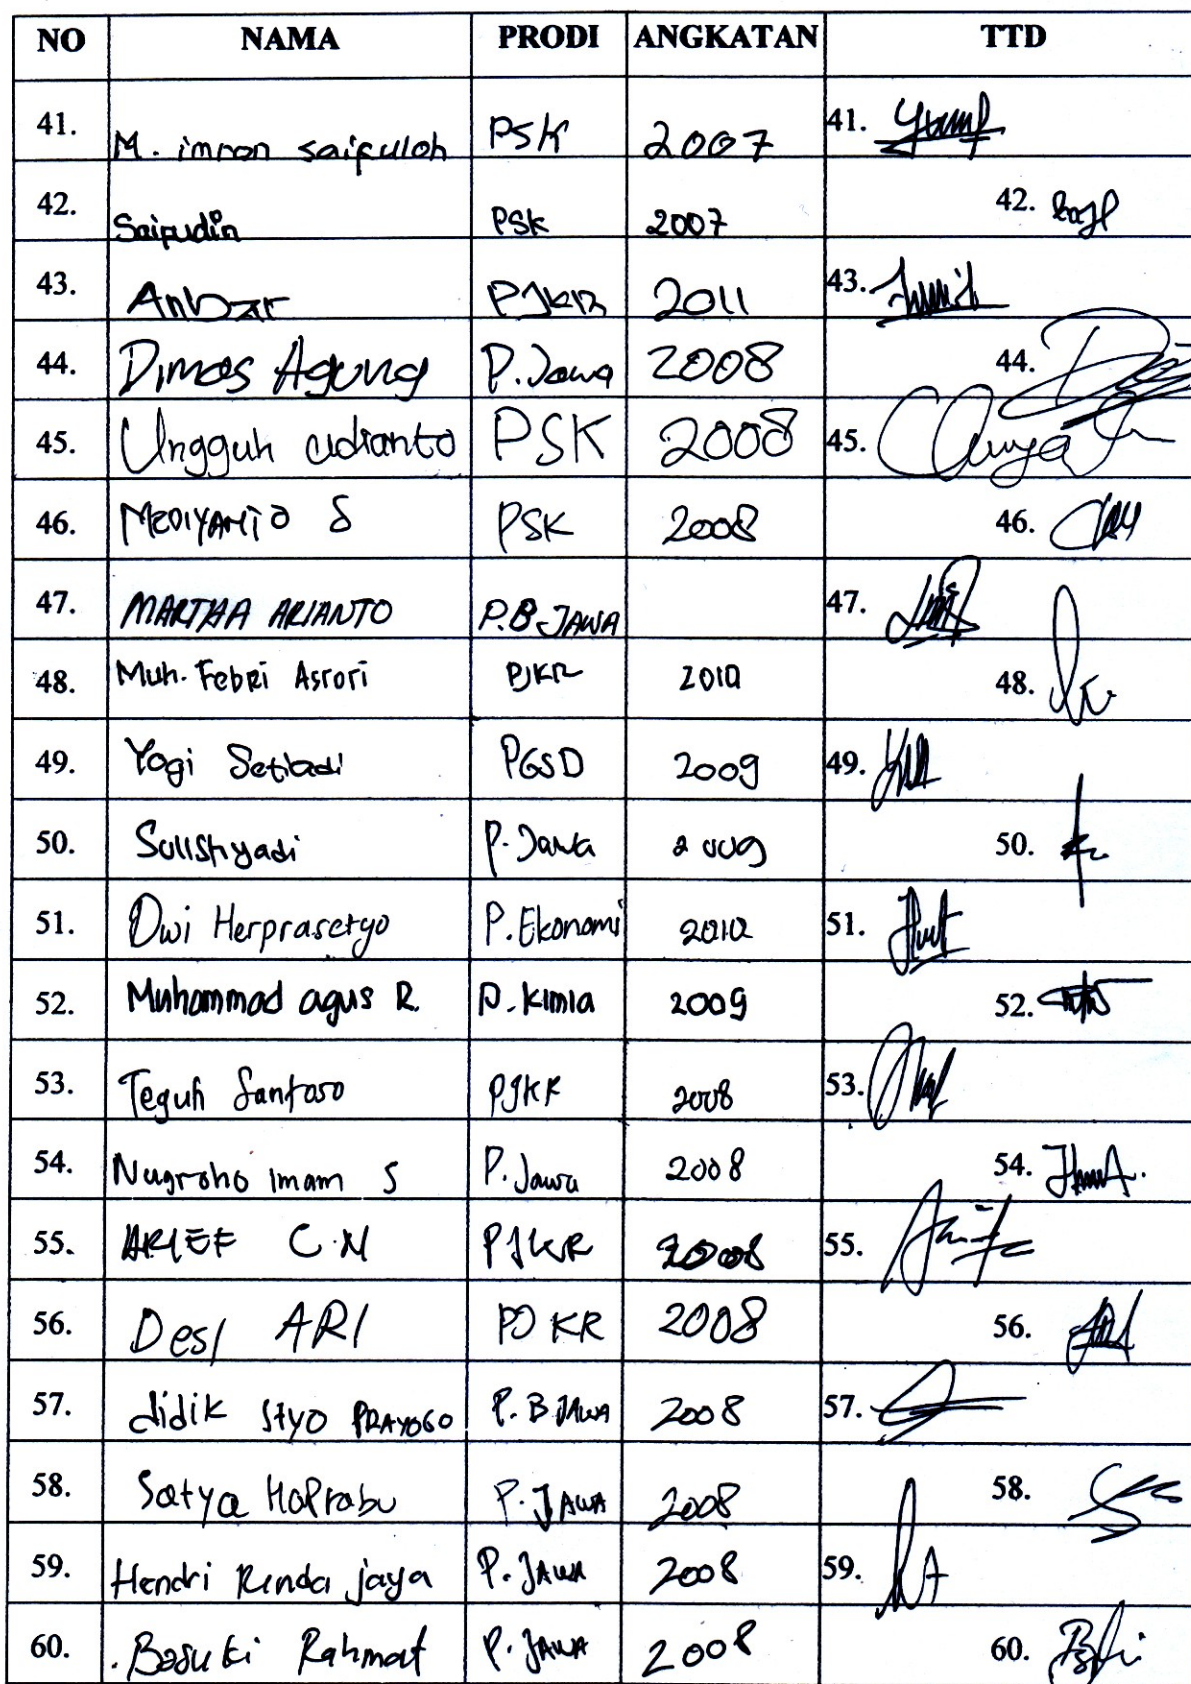 NO NAMA PRODI ANGKATAN TTD
41. M. imron saifuloh PSK 2007 41.
42. Saifudin PSK 2007 42.
43. Anbar PJKR 2011 43.
44. Dimas Agung P. Jawa 2008 44.
45. Ungguh udianto PSK 2008 45.
46. MEDIYANTO S PSK 2008 46.
47. MARTHA ARIANTO P.B JAWA 47.
48. Muh. Febri Asrori PJKR 2010 48.
49. Yogi Setiadi PGSD 2009 49.
50. Sulistiyadi P. Jawa 2009 50.
51. Dwi Herprasetyo P. Ekonomi 2010 51.
52. Muhammad agus R. P. Kimia 2009 52.
53. Teguh Santoso PJKR 2008 53.
54. Nugroho Imam S P. Jawa 2008 54.
55. ARIEF C.N PJKR 2008 55.
56. Desi ARI PJKR 2008 56.
57. didik styo PRAYOGO P. B JAWA 2008 57.
58. Satya P. JAWA 2008 58.
59. Hendri Renda jaya P. JAWA 2008 59.
60. Basuki Rahmat P. JAWA 2008 60.